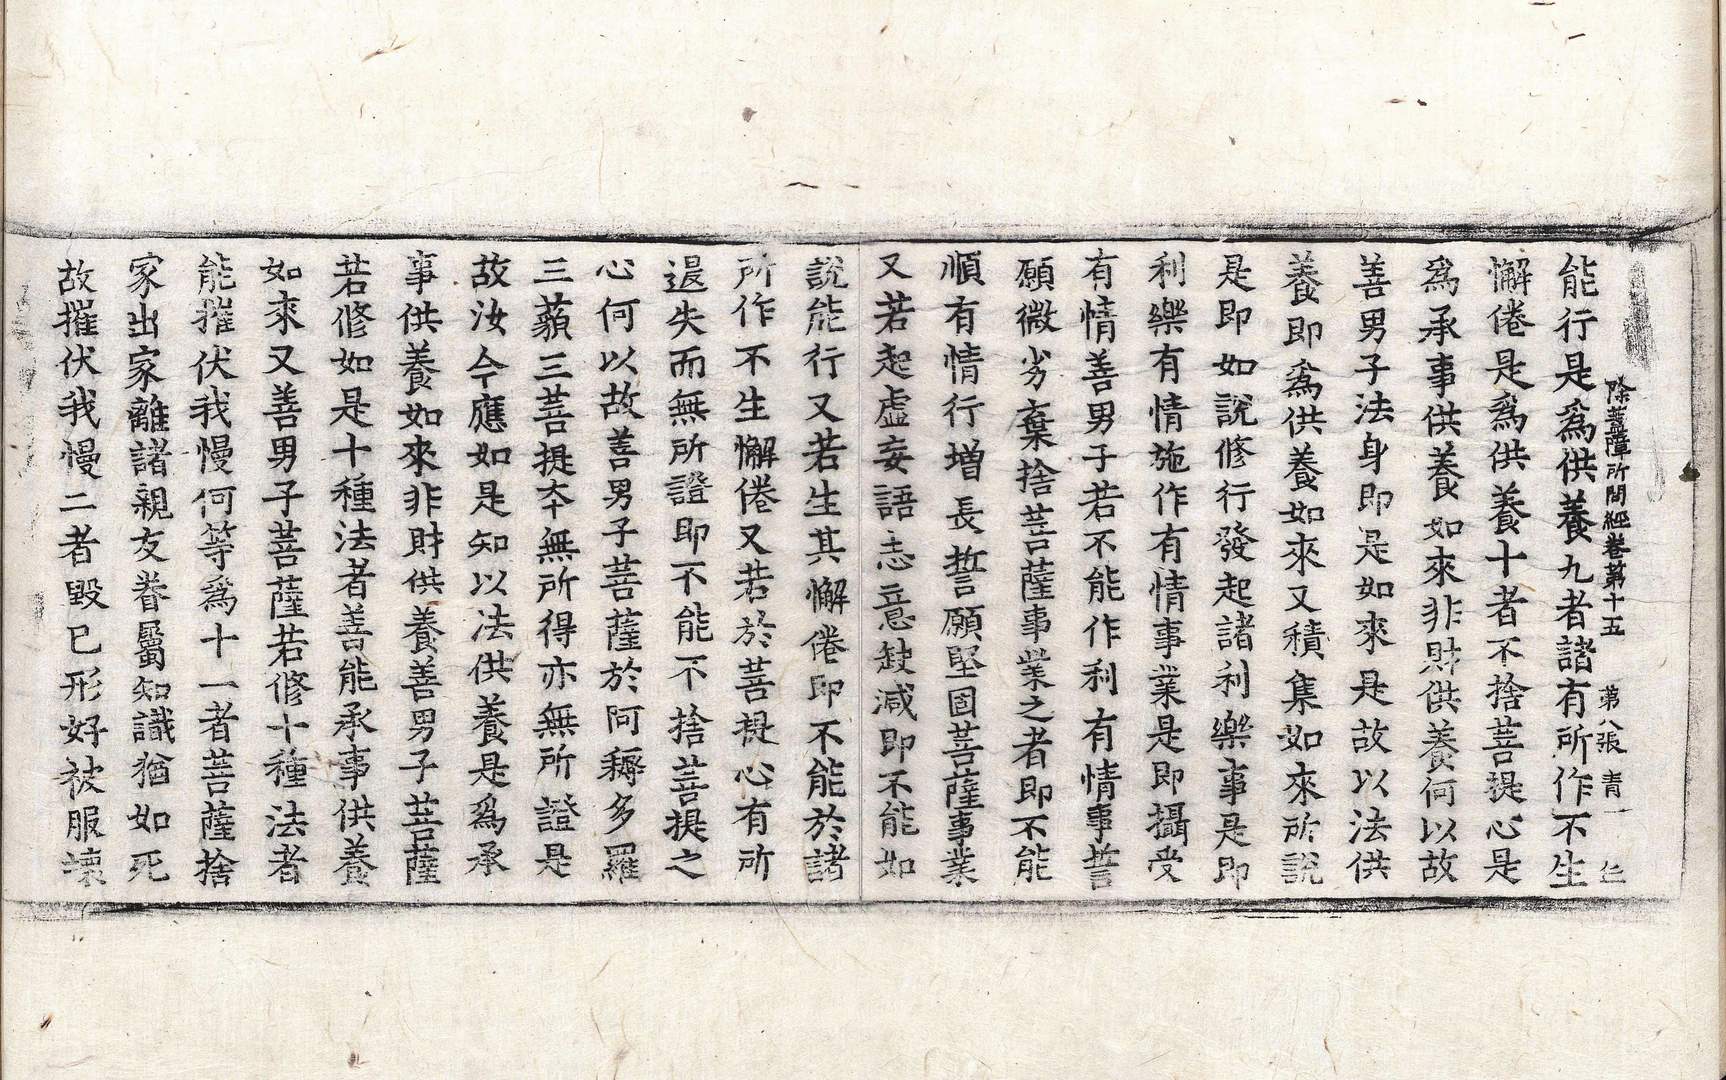 除蓋障所問經卷第十五 第八張 青
能行是爲供養九者諸有所作不生
懈倦是爲供養十者不捨菩提心是
爲承事供養如來非財供養何以故
善男子法身即是如來是故以法供
養即爲供養如來又積集如來所說
是即如說修行發起諸利樂事是即
利樂有情施作有情事業是即攝受
有情善男子若不能作利有情事誓
願微劣棄捨菩薩事業之者即不能
順有情行增長誓願堅固菩薩事業
又若起虛妄語志意缺減即不能如
說能行又若生其懈倦即不能於諸
所作不生懈倦又若於菩提心有所
退失而無所證即不能不捨菩提之
心何以故善男子菩薩於阿耨多羅
三藐三菩提夲無所得亦無所證是
故汝今應如是知以法供養是爲承
事供養如來非財供養善男子菩薩
若修如是十種法者善能承事供養
如來又善男子菩薩若修十種法者
能摧伏我慢何等爲十一者菩薩捨
家出家離諸親友眷屬知識猶如死
故摧伏我慢二者毀已形好被服壞